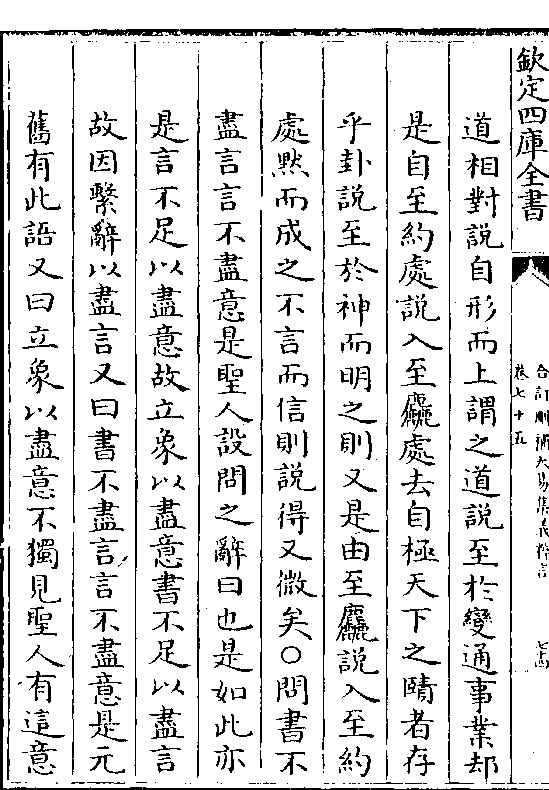 欽定四庫全書
合訂刪補大易集義粹言
卷七十五
七十四
道相對說自形而上謂之道說至於變通事業却
是自至約處說入至麤處去自極天下之賾者存
乎卦說至於神而明之則又是由至麤說入至約
處黙而成之不言而信則說得又微矣○問書不
盡言言不盡意是聖人設問之辭曰也是如此亦
是言不足以盡意故立象以盡意書不足以盡言
故因繫辭以盡言又曰書不盡言言不盡意是元
舊有此語又曰立象以盡意不獨見聖人有這意